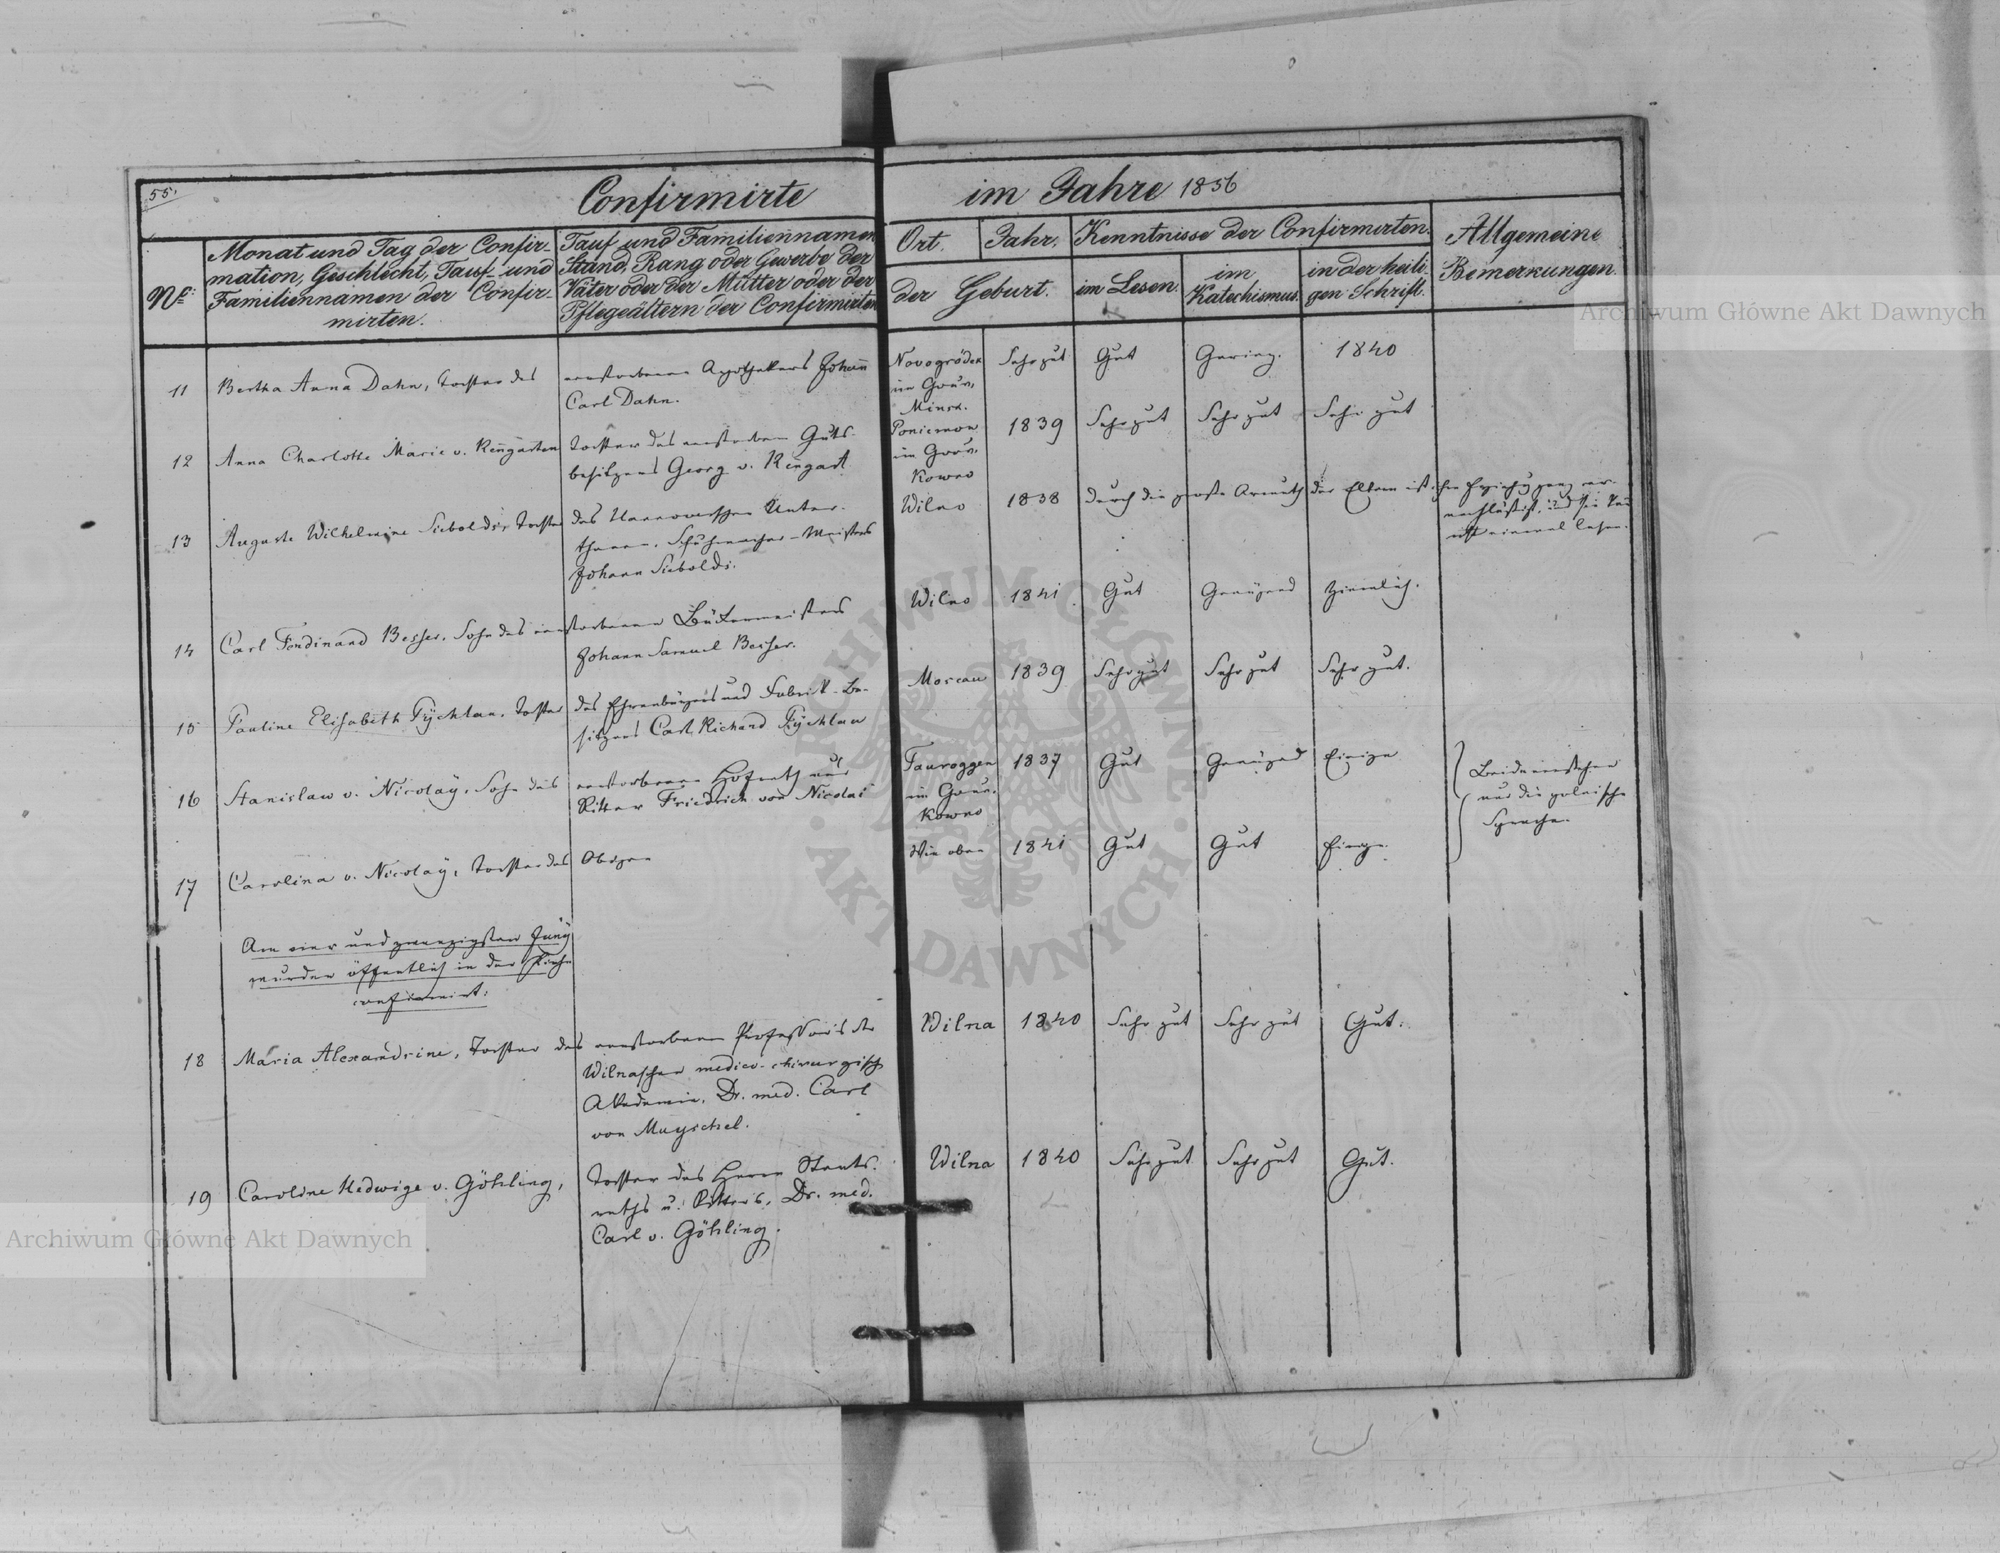 55.
Confirmirte im Jahre 1856
No.
Monat und Tag der Confir-
mation, Geschlecht, Tauf- und
Familiennamen der Confir-
mirten.
Tauf- und Familiennamen
Stand, Rang oder Gewerbe der
Väter oder der Mütter oder der
Pflegeältern der Confirmirten
Ort. Jahr.
der Geburt.
Kenntnisse der Confirmirten.
im Lesen.
im
Katechismus.
in der heili-
gen Schrift.
Allgemeine
Bemerkungen.
11 Bertha Anna Dahn, Tochter des verstorbenen Apothekers Johann
Carl Dahn.
Novogródek
im Gouv.
Minsk.
Sehr gut Gut Gering. 1840
12 Anna Charlotte Marie v. Rengarten Tochter des verstorbenen Guts-
besitzers Georg v. Rengart
Poniemon
im Gouv.
Kowno
1839 Sehr gut Sehr gut Sehr gut
13 Auguste Wilhelmine Siebolds, Tochter des Hannoverschen Unter-
thanen, Schuhmacher-Meisters
Johann Siebolds.
Wilno 1838 durch die große Armuth der Eltern ist ihre Erziehung ganz ver-
nachläßigt, und sie kann
nicht einmal lesen.
14 Carl Ferdinand Besser, Sohn des verstorbenen Bäckermeisters
Johann Samuel Besser.
Wilno 1841 Gut Genügend Ziemlich.
15 Pauline Elisabeth Frychlau, Tochter des Ehrenbürgers und Fabrik-Be-
sitzers Carl Richard Frychlau
Moscau 1839 Sehr gut Sehr gut Sehr gut.
16 Stanislaw v. Nicolaÿ, Sohn des verstorbenen Hofrath und
Ritter Friedrich von Nicolai
Tauroggen
im Gouv.
Kowno
1837 Gut Genügend Einige
Beide verstehen
nur die polnische
Sprache.
17 Carolina v. Nicolaÿ, Tochter des Obigen
Wie oben 1841 Gut Gut Einige.
Am vier und zwanzigsten Juny
wurden öffentlich in der Kirche
confirmirt:
18 Maria Alexandrine, Tochter des verstorbenen Professors der
Wilnaschen medico-chirurgisch
Akademie, Dr. med. Carl
von Muyschel.
Wilna 1840 Sehr gut Sehr gut Gut.
19 Caroline Hedwige v. Göhling, Tochter des Herrn Staats-
raths u. Ritters, Dr. med.
Carl v. Göhling.
Wilna 1840 Sehr gut Sehr gut Gut.
Archiwum Główne Akt Dawnych
Archiwum Główne Akt Dawnych
ARCHIWUM GŁÓWNE · AKT DAWNYCH ·